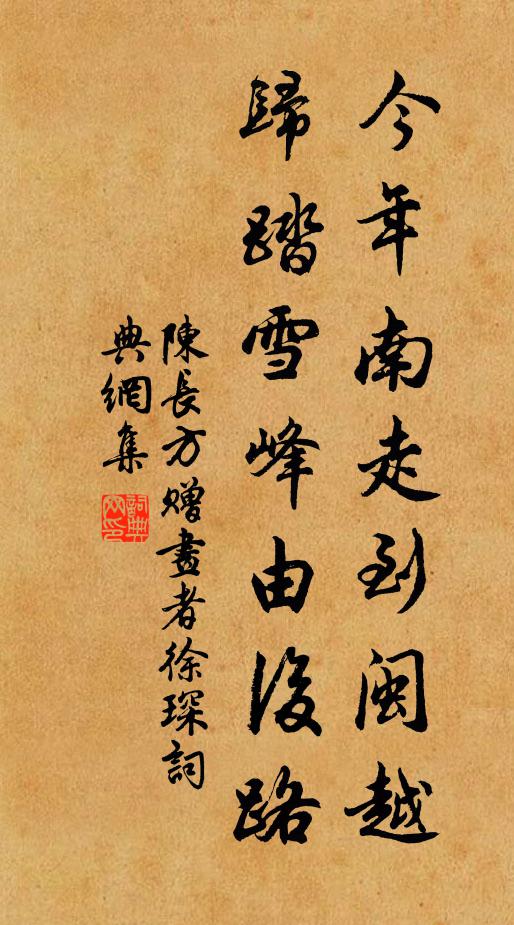 今年南走到閩越
歸踏雪峰由後路
陳長方贈畫者徐琛詞
典網集
詞典網印